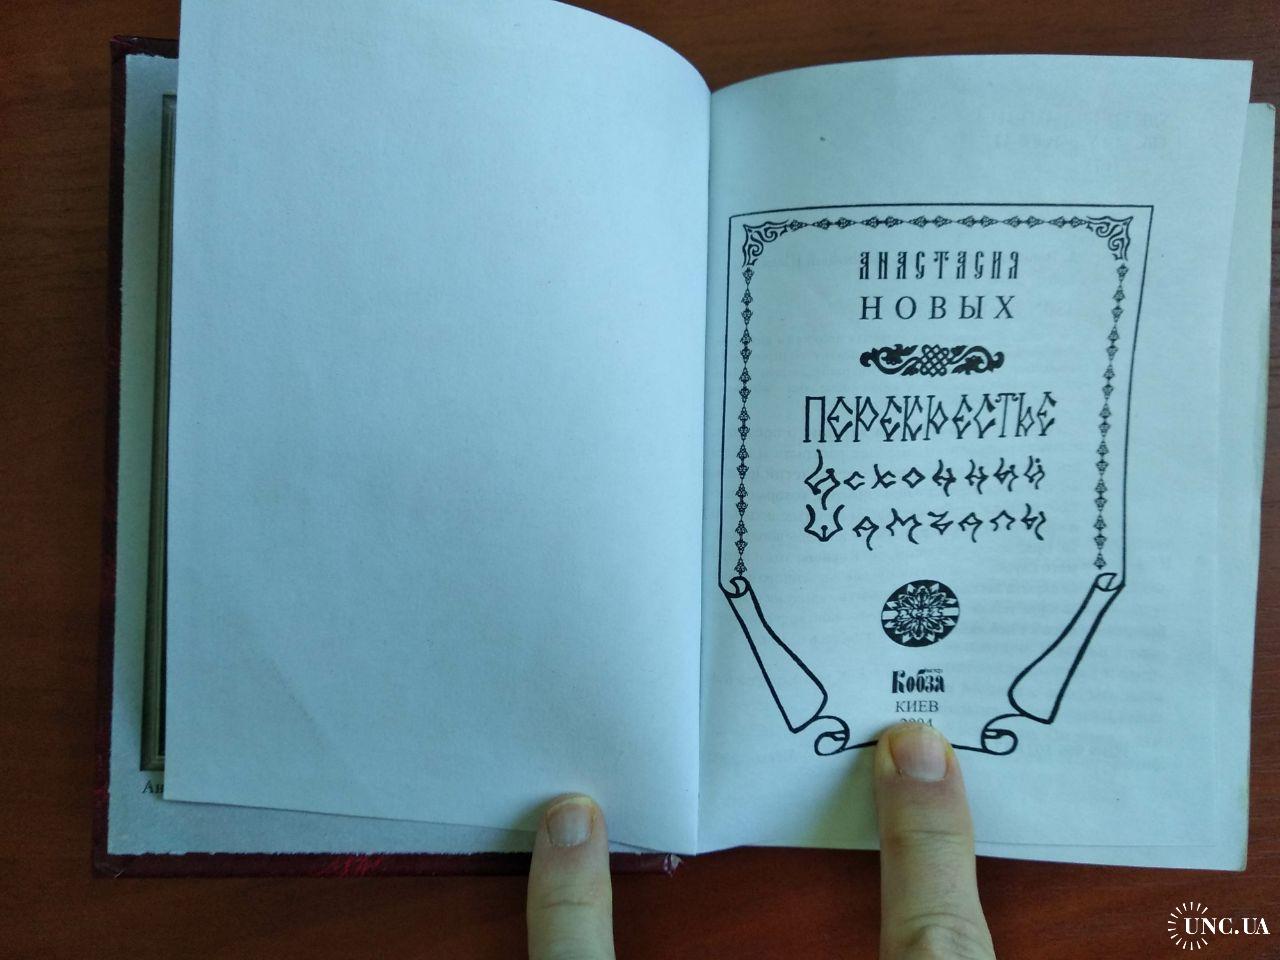 АНАСТАСИЯ
НОВЫХ
ПЕРЕКРЕСТЬЕ
Исконный
Шамбалы
Кобза
КИЕВ
2004
Ан
UNC.UA